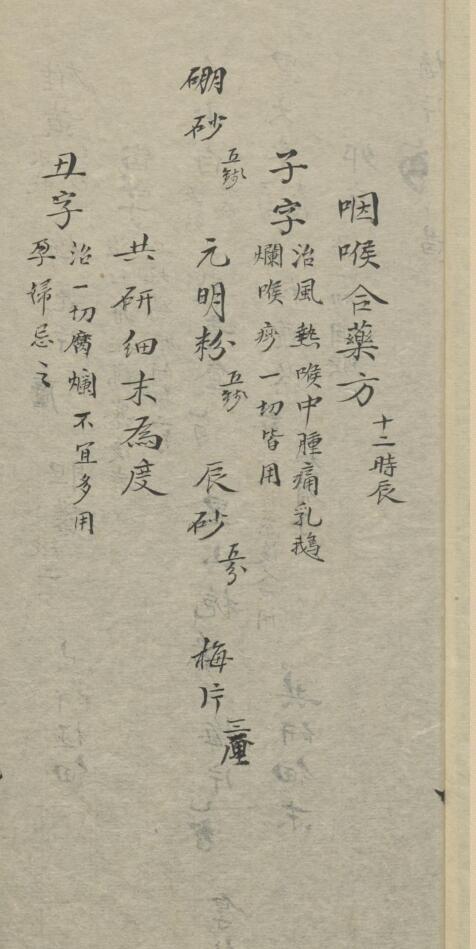 咽喉合藥方 十二時辰
子字 治風熱喉中腫痛乳鵝
爛喉痧一切皆用
硼砂 五錢 元明粉 五錢 辰砂 五分 梅片 三厘
共研細末為度
丑字 治一切腐爛不宜多用
孕婦忌之